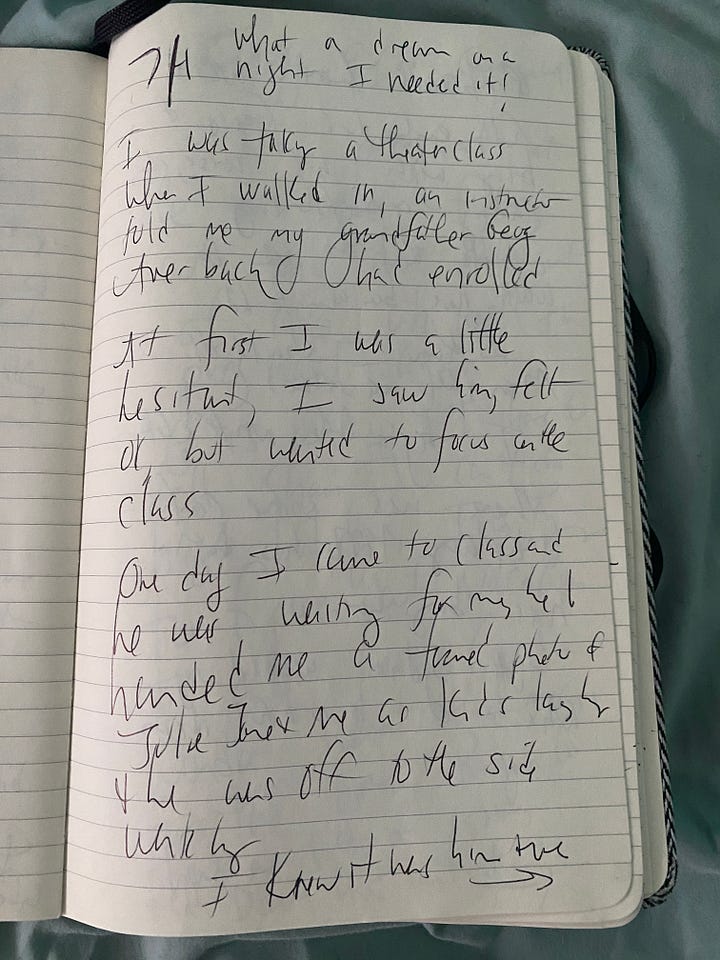 7/4 What a dream on a
night I needed it!
I was taking a theater class
When I walked in, an instructor
told me my grandfather Georg
Auerbach had enrolled
At first I was a little
hesitant, I saw him, felt
ok, but wanted to focus on the
class
One day I came to class and
he was waiting for me, he
handed me a framed photo of
Julie & me as kids laughing
& he was off to the side
I knew it was him &